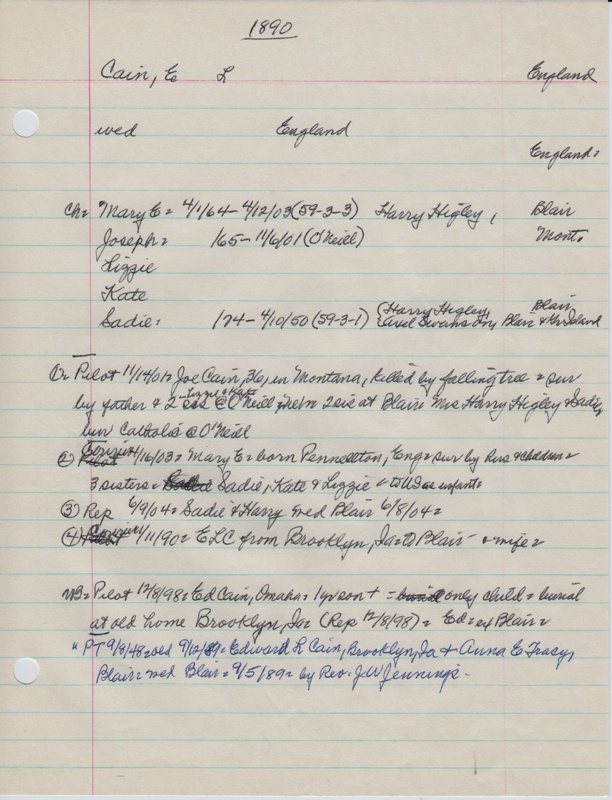 1890
Cain, E L England
wed England
England=
Ch= Mary E= 4/1/64 - 4/12/03 (59-3-3) Harry Higley, Blair
Joseph= /65 - 11/6/01 (O'Neill) Mont.
Lizzie
Kate
Sadie= /74 - 4/10/50 (59-3-1) (Harry Higley, Blair
Swanson, Blair & Gr Island
Pilot 11/14/01= Joe Cain, 36, in Montana, killed by falling tree = sur
Lizzie & Kate
by father & 2 sis @ O'Neill 2 sis at Blair Mrs Harry Higley & Sadie,
bur Catholic @ O'Neill
② Courier 4/16/03= Mary E= born Eng= sur by hus & children=
3 sisters= Sadie, Kate & Lizzie = to US as infant=
③ Rep 6/9/04= Sadie & Harry wed Blair 6/8/04=
④ Courier 1/11/90= ELC from Brooklyn, Ia= to Blair - & wife=
NB= Pilot 12/8/98= Ed Cain, Omaha= 1 yr son + = only child= burial
at old home Brooklyn, Ia= (Rep 12/8/98) = Ed= ex Blair=
" PT 9/8/48= old 9/12/89= Edward L Cain, Brooklyn, Ia + Anna E Tracy,
Blair= wed Blair= 9/5/89= by Rev. JW Jennings.